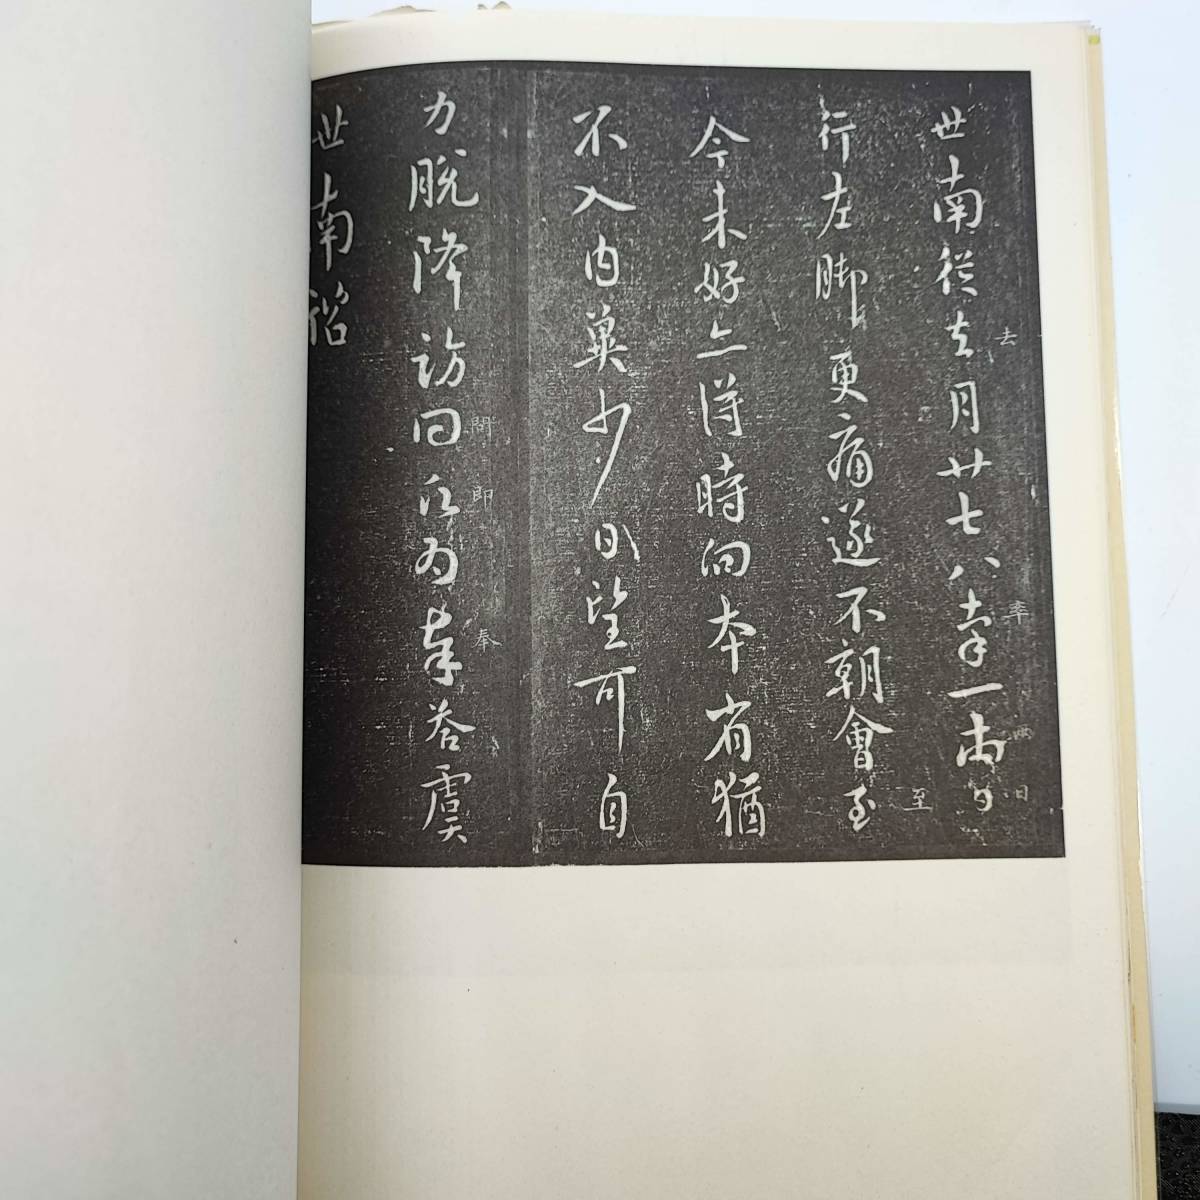 世南從去月廿七八率一兩日
行左脚更痛遂不朝會至
今未好亦得時向本省猶
不入內冀少日望可自
力脫降訪問即為奉答虞
世南
去
率
兩
日
至
問
即
奉